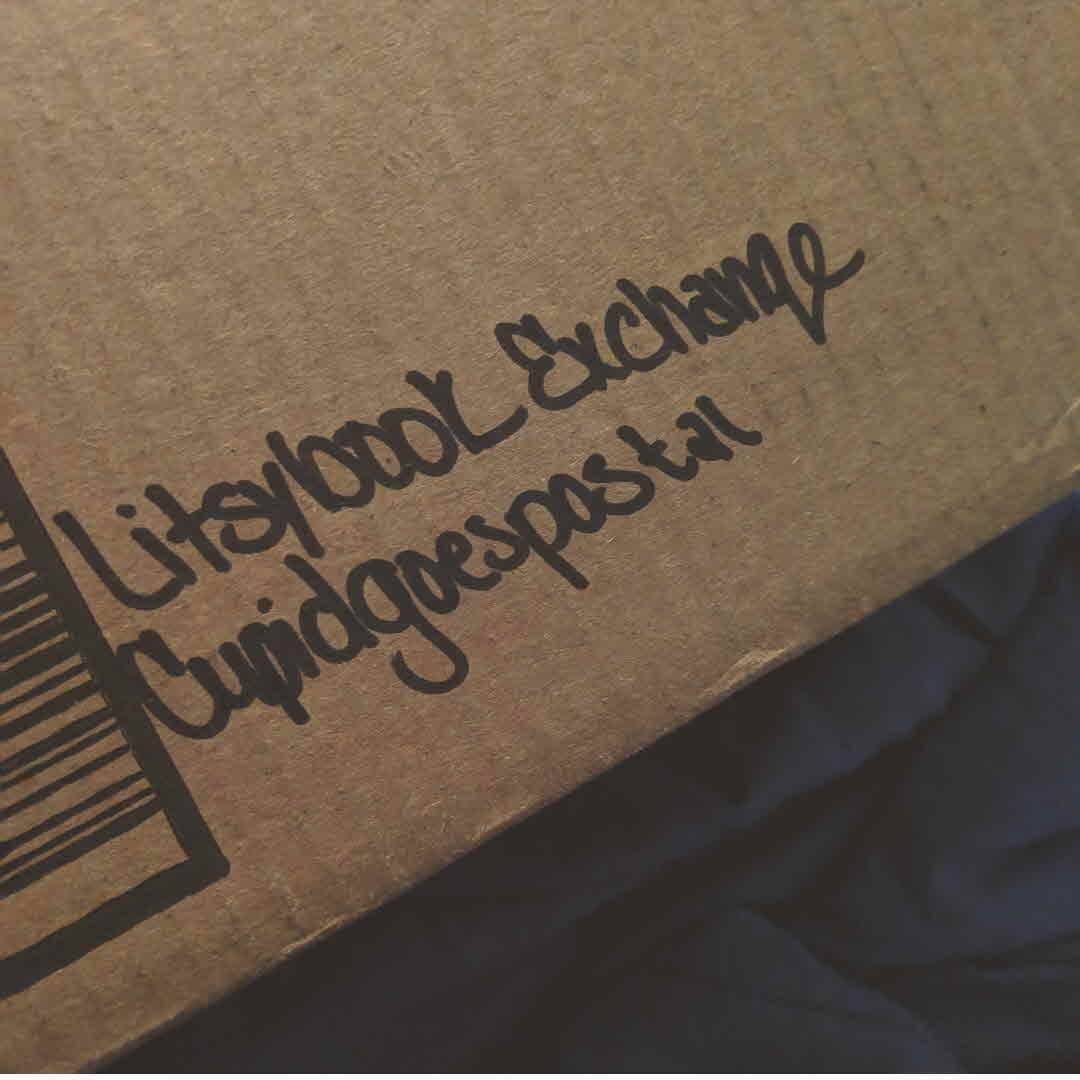 Litsybook Exchange
Cupidgoespostal